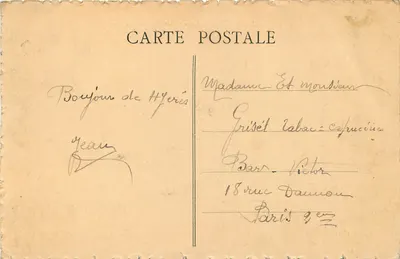 CARTE POSTALE
Bonjour de Hyerés
Jean
Madame Et monsieur
Grisél Tabac = Capucine
Bar Victor
18 rue Daunou
Paris 9em